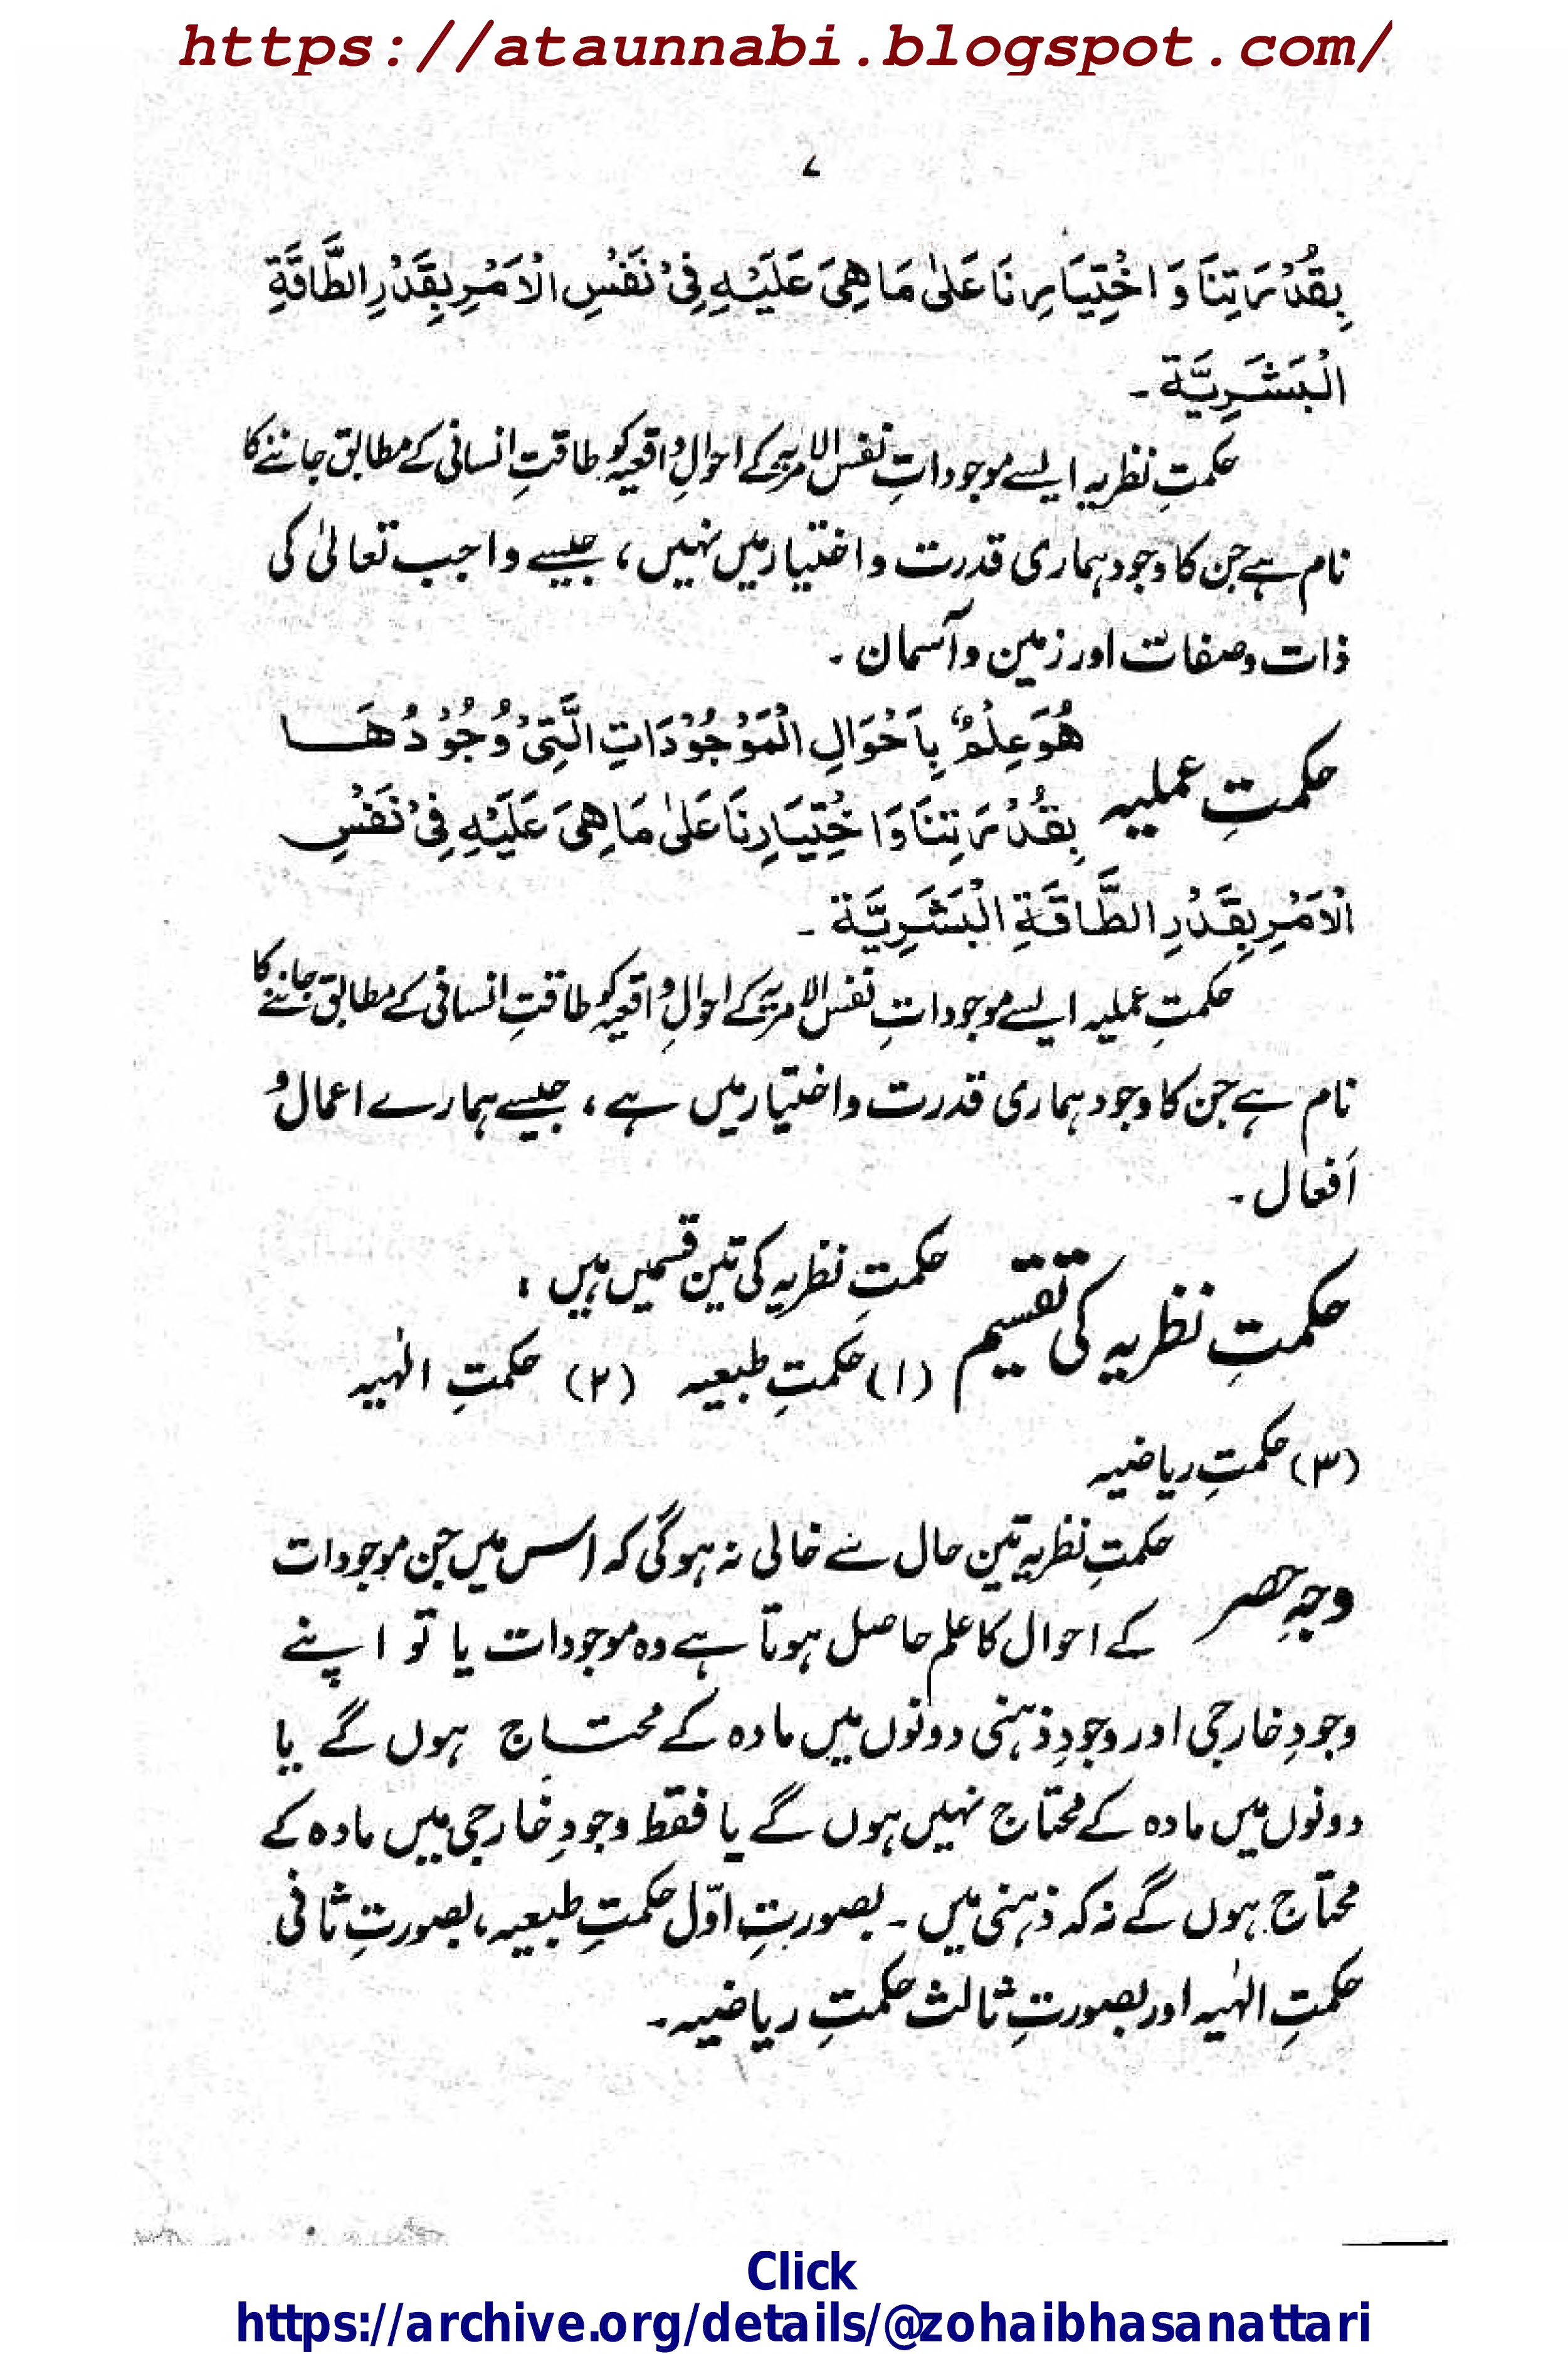 https://ataunnabi.blogspot.com/
۷
بِقُدْرَتِنَا وَ اخْتِيَارِنَا عَلىٰ مَا هِىَ عَلَيْهِ فِىْ نَفْسِ الْاَمْرِ بِقَدْرِ الطَّاقَةِ
الْبَشَرِيَّة ۔
حکمتِ نظریہ ایسے موجوداتِ نفس الامریہ کے احوالِ واقعیہ کو طاقتِ انسانی کے مطابق جاننے کا
نام ہے جن کا وجود ہماری قدرت و اختیار میں نہیں ، جیسے واجب تعالیٰ کی
ذات و صفات اور زمین و آسمان ۔
هُوَ عِلْمٌ بِاَحْوَالِ الْمَوْجُوْدَاتِ الَّتِىْ وُجُوْدُهَا
حکمتِ عملیہ
بِقُدْرَتِنَا وَ اخْتِيَارِنَا عَلىٰ مَا هِىَ عَلَيْهِ فِىْ نَفْسِ
الْاَمْرِ بِقَدْرِ الطَّاقَةِ الْبَشَرِيَّة ۔
حکمتِ عملیہ ایسے موجوداتِ نفس الامریہ کے احوالِ واقعیہ کو طاقتِ انسانی کے مطابق جاننے کا
نام ہے جن کا وجود ہماری قدرت و اختیار میں ہے ، جیسے ہمارے اعمال و
اَفعال ۔
حکمتِ نظریہ کی تقسیم
حکمتِ نظریہ کی تین قسمیں ہیں :
(۱) حکمتِ طبعیہ (۲) حکمتِ الٰہیہ
(۳) حکمتِ ریاضیہ
وجہِ حصر
حکمتِ نظریہ تین حال سے خالی نہ ہوگی کہ اس میں جن موجودات
کے احوال کا علم حاصل ہوتا ہے وہ موجودات یا تو اپنے
وجودِ خارجی اور وجودِ ذہنی دونوں میں مادہ کے محتاج ہوں گے یا
دونوں میں مادہ کے محتاج نہیں ہوں گے یا فقط وجودِ خارجی میں مادہ کے
محتاج ہوں گے نہ کہ ذہنی میں ۔ بصورتِ اوّل حکمتِ طبعیہ ، بصورتِ ثانی
حکمتِ الٰہیہ اور بصورتِ ثالث حکمتِ ریاضیہ ۔
Click
https://archive.org/details/@zohaibhasanattari